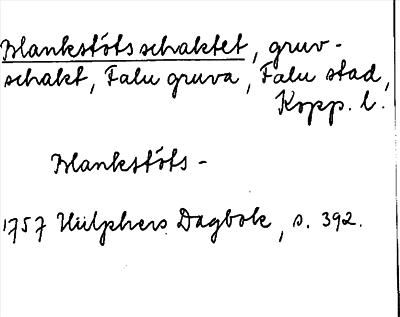 Blankstötsschaktet, gruv-
schakt, Falu gruva, Falu stad,
Kopp. l.
Blankstöts-
1757 Hülphers Dagbok, s. 392.